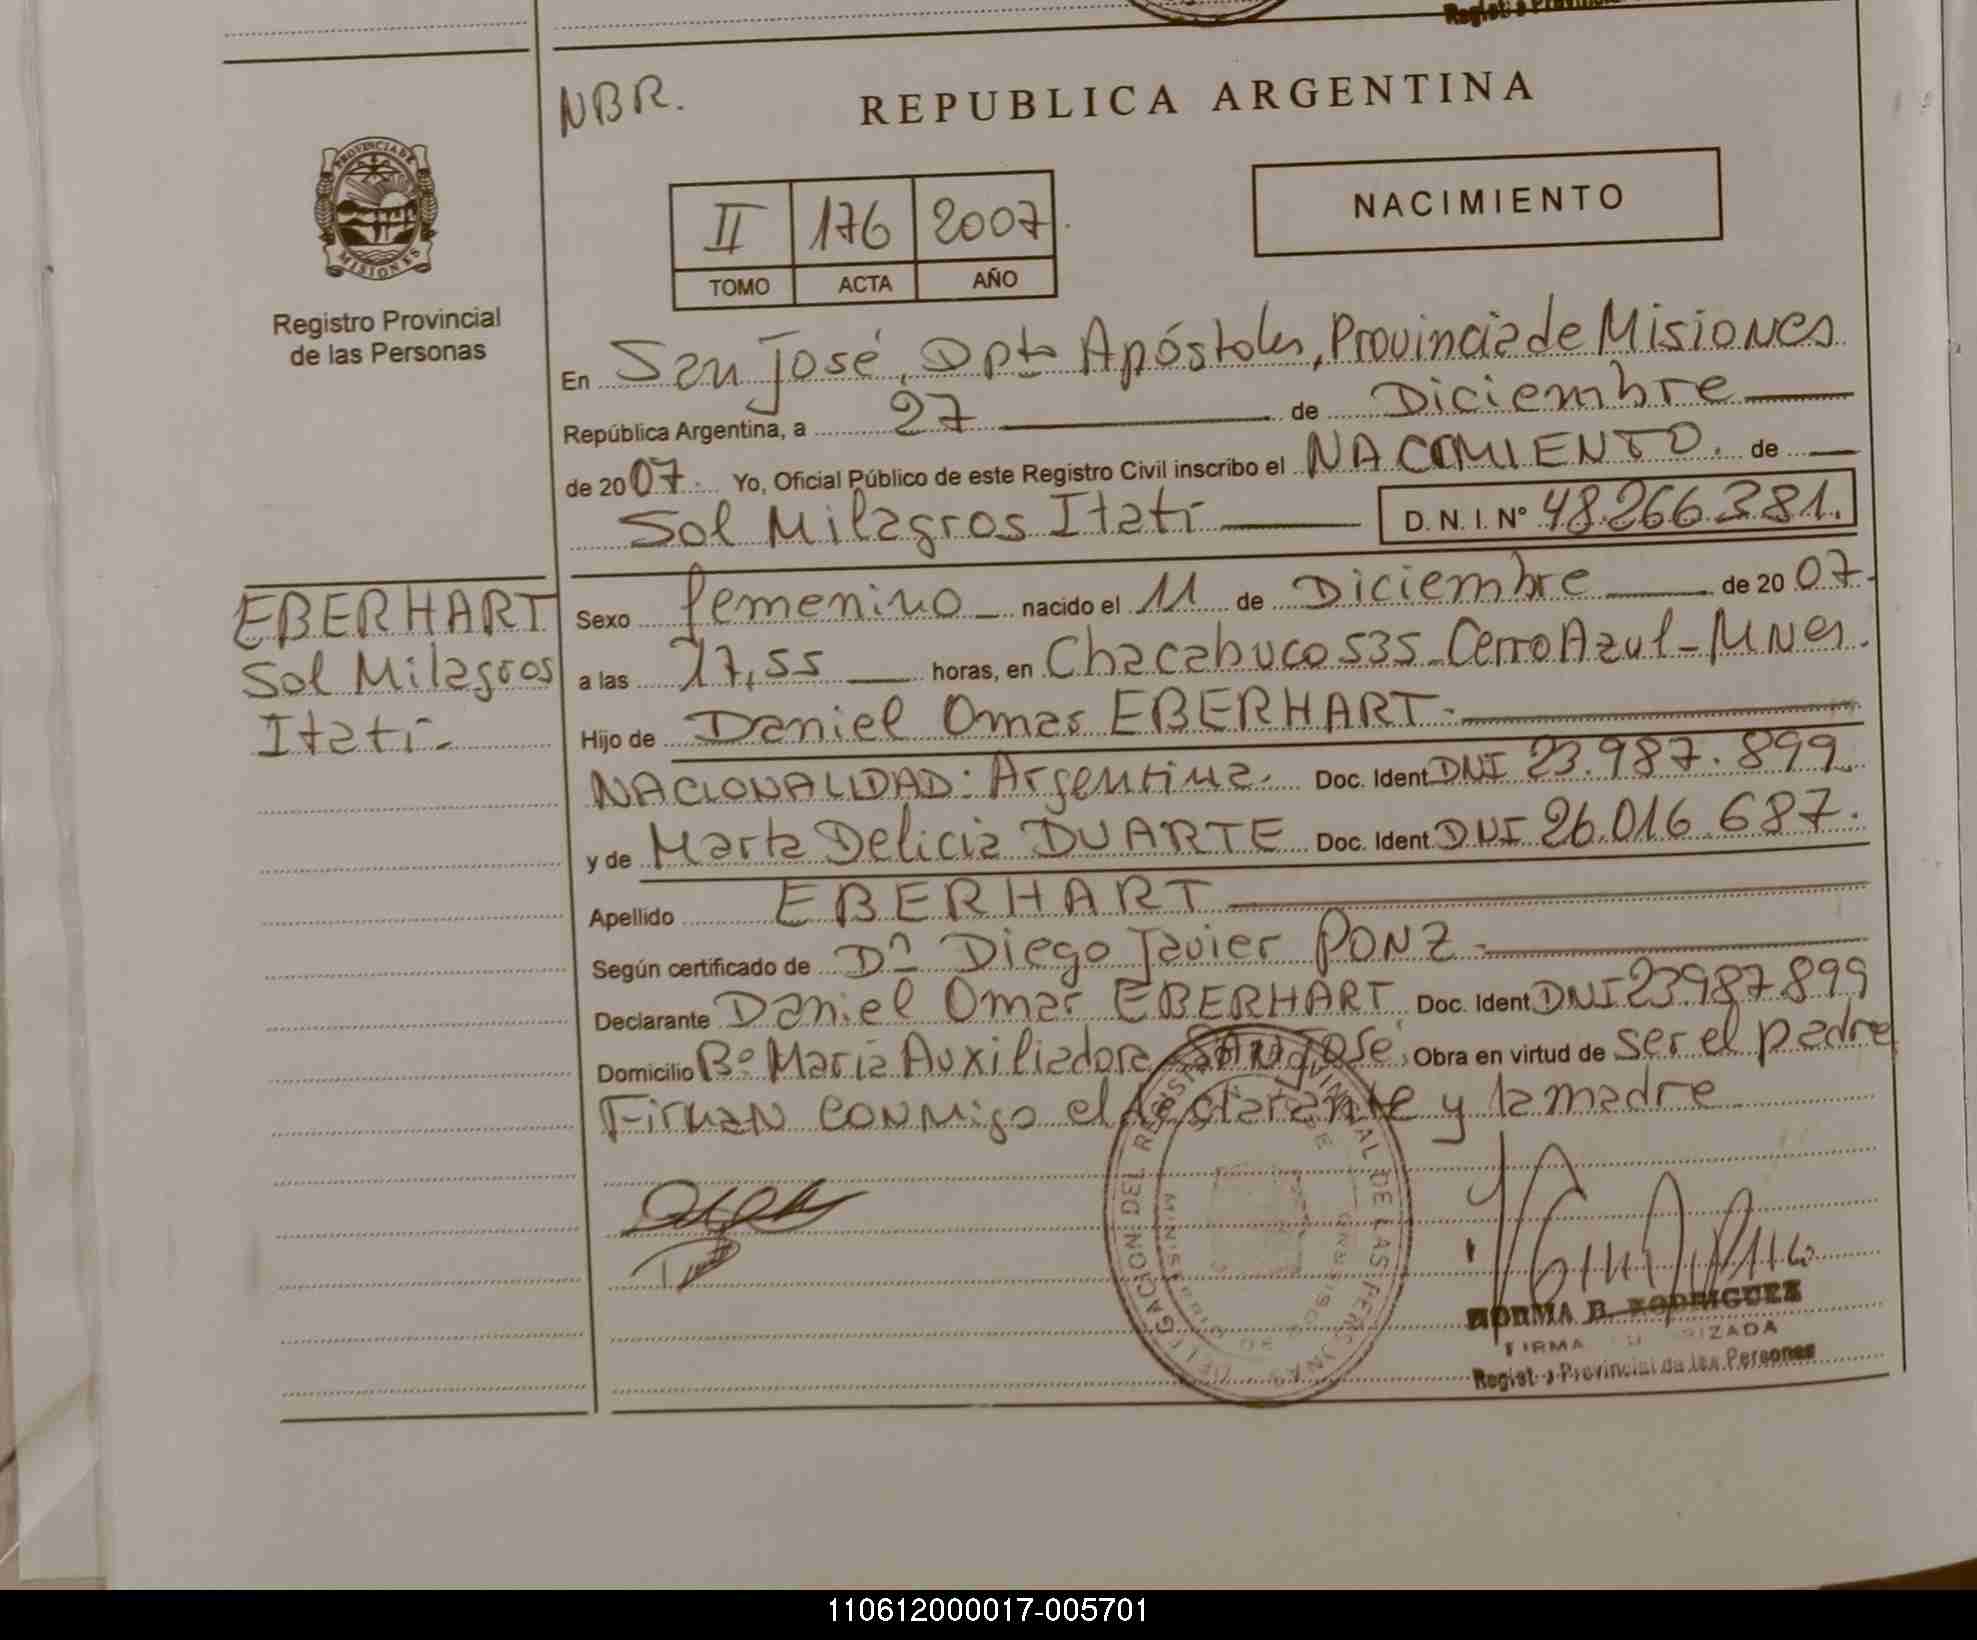 NBR.
REPUBLICA ARGENTINA
PROVINCIA DE
MISIONES
Registro Provincial
de las Personas
II 176 2007
TOMO ACTA AÑO
NACIMIENTO
En San José, Dpto Apóstoles, Provincia de Misiones
República Argentina, a 27 de Diciembre
de 2007. Yo, Oficial Público de este Registro Civil inscribo el NACIMIENTO. de
Sol Milagros Itatí D. N. I. Nº 48.266.381.
EBERHART
Sol Milagros
Itatí
Sexo femenino nacido el 11 de Diciembre de 2007.
a las 17,55 horas, en Chacabuco 535 - Cerro Azul - Mnes.
Hijo de Daniel Omar EBERHART.
NACIONALIDAD: Argentina. Doc. Ident. DNI 23.987.899
y de Marta Delicia DUARTE Doc. Ident. DNI 26.016.687.
Apellido EBERHART
Según certificado de Dn Diego Javier PONZ
Declarante Daniel Omar EBERHART Doc. Ident. DNI 23987899
Domicilio Bº María Auxiliadora San José, Obra en virtud de ser el padre
Firman conmigo el declarante y la madre
DELEGACION DEL REGISTRO PROVINCIAL DE LAS PERSONAS
NORMA B. RODRIGUEZ
FIRMA AUTORIZADA
Registro Provincial de las Personas
110612000017-005701